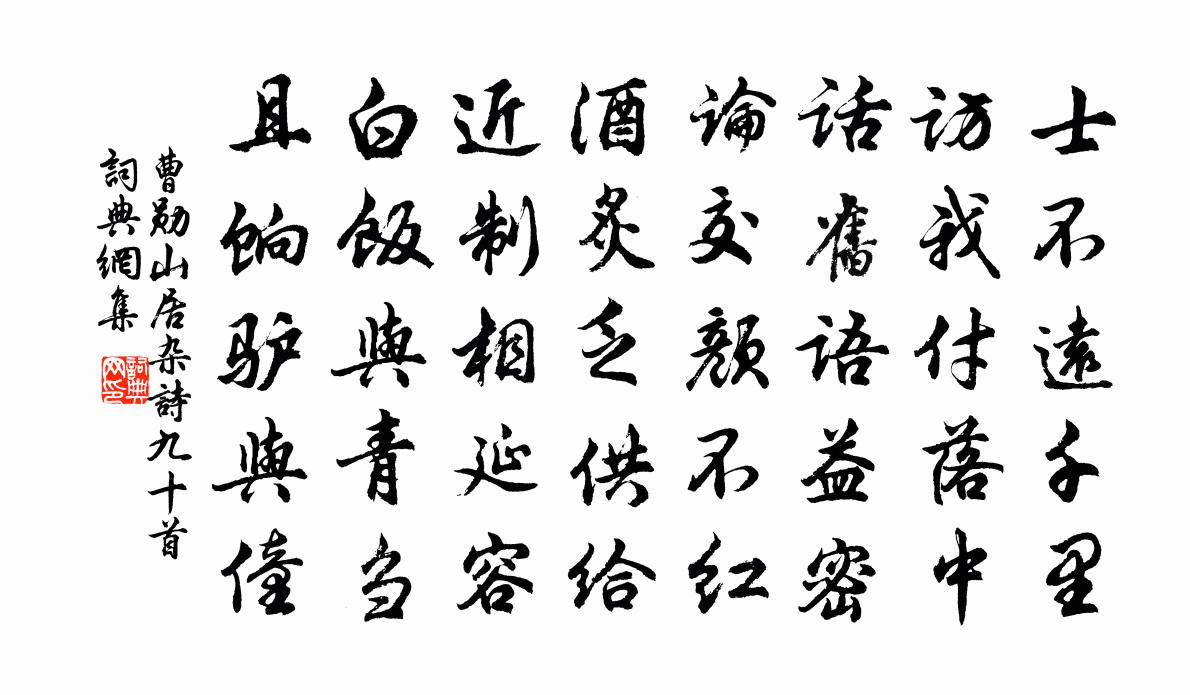 士不遠千里
訪我付落中
話舊語益密
論交顏不紅
酒炙乏供給
近制相延容
白飯與青刍
且餉驴與僮
曹勛山居杂詩九十首
詞典網集
詞典网印